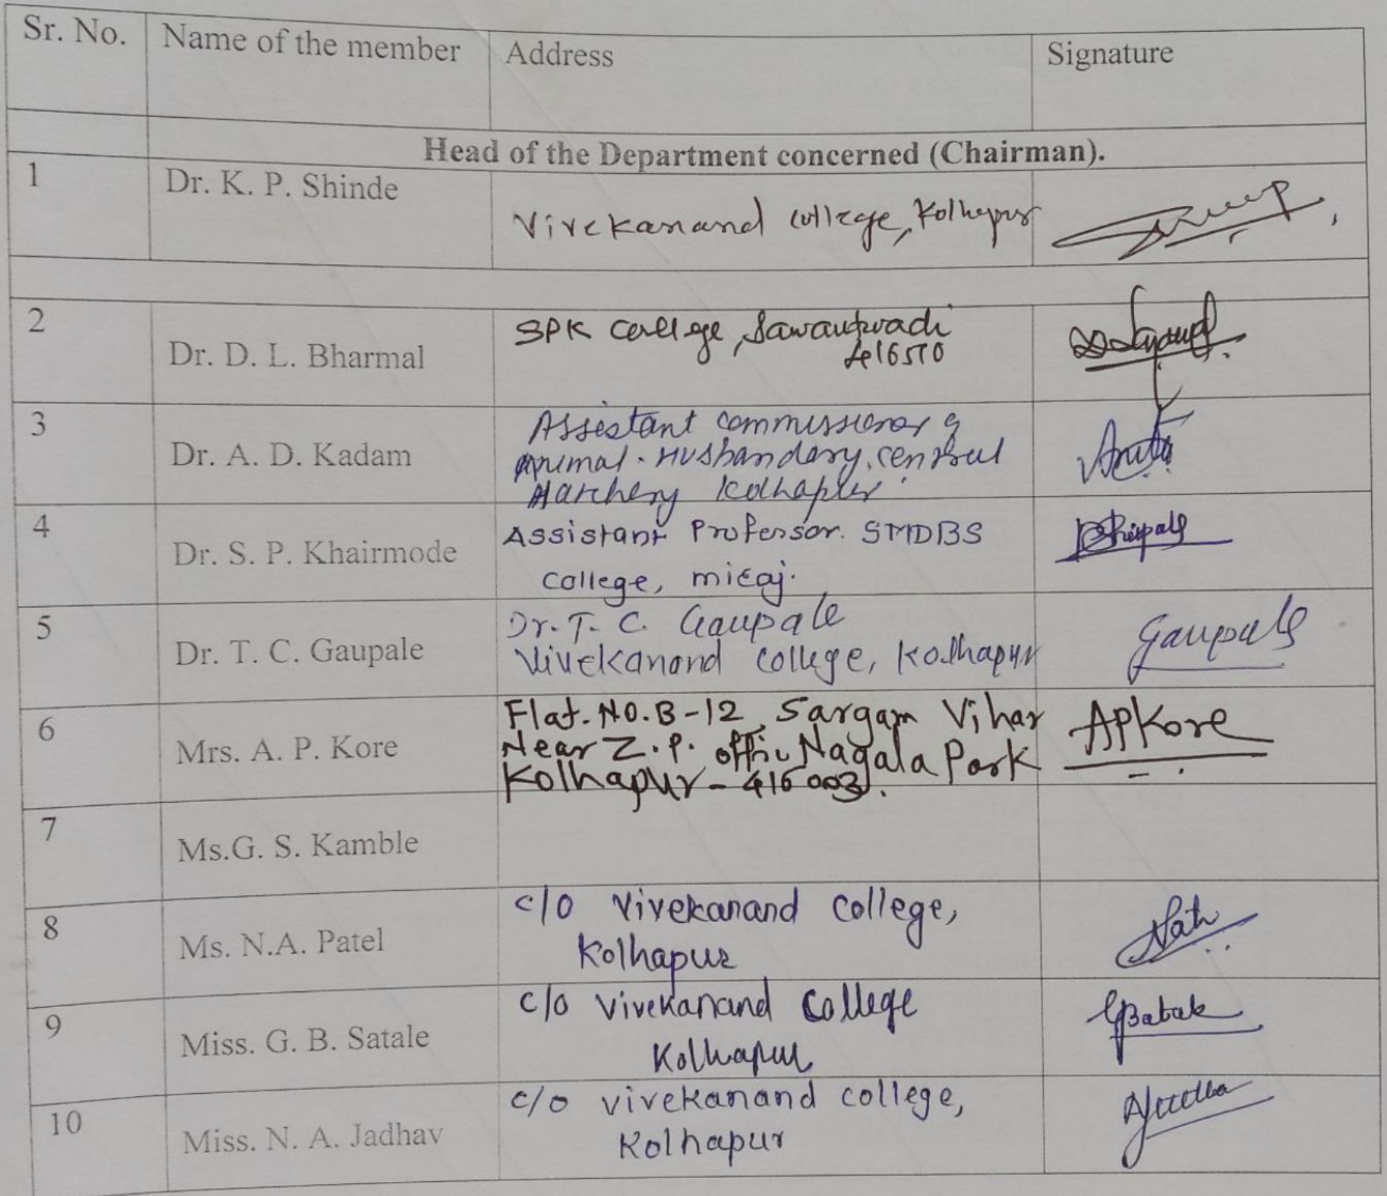 Sr. No. Name of the member Address Signature
Head of the Department concerned (Chairman).
1 Dr. K. P. Shinde Vivekanand college, Kolhapur
2 Dr. D. L. Bharmal SPK College, Sawantwadi
416510
3 Dr. A. D. Kadam Assistant commissioner of
Animal. Husbandary, central
Hatchery Kolhapur.
4 Dr. S. P. Khairmode Assistant Professor. SMDBS
college, miraj.
5 Dr. T. C. Gaupale Dr. T. C. Gaupale Gaupale
Vivekanand college, Kolhapur
6 Mrs. A. P. Kore Flat. NO. B-12, Sargam Vihar APKore
Near Z. P. offic Nagala Park
Kolhapur - 416 003.
7 Ms.G. S. Kamble
8 Ms. N.A. Patel c/o Vivekanand college,
Kolhapur
9 Miss. G. B. Satale c/o Vivekanand College
Kolhapur
10 Miss. N. A. Jadhav c/o vivekanand college,
Kolhapur